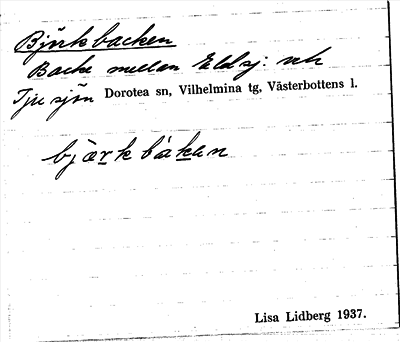 Björkbacken
Backe mellan Eldsj: och
Tjusjön Dorotea sn, Vilhelmina tg, Västerbottens l.
bjærkbakən
Lisa Lidberg 1937.